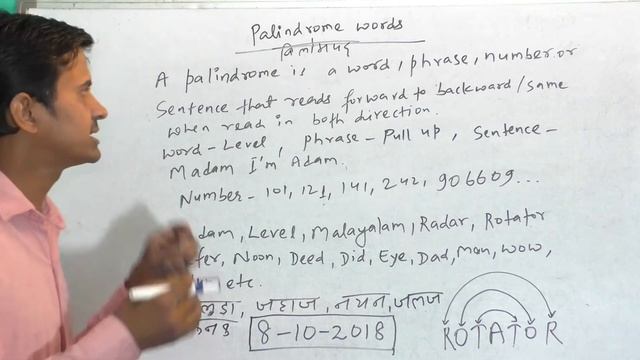 Palindrome words
A palindrome is a word, phrase, number or
Sentence that reads forward to backward/same
when read in both direction.
word - Level, phrase - Pull up, Sentence -
Madam I'm Adam.
Number - 101, 121, 141, 242, 906609...
dam, Level, Malayalam, Radar, Rotator
fer, Noon, Deed, Did, Eye, Dad, Mam, wow,
etc.
जहाज, नयन, जलज
8-10-2018
ROTATOR